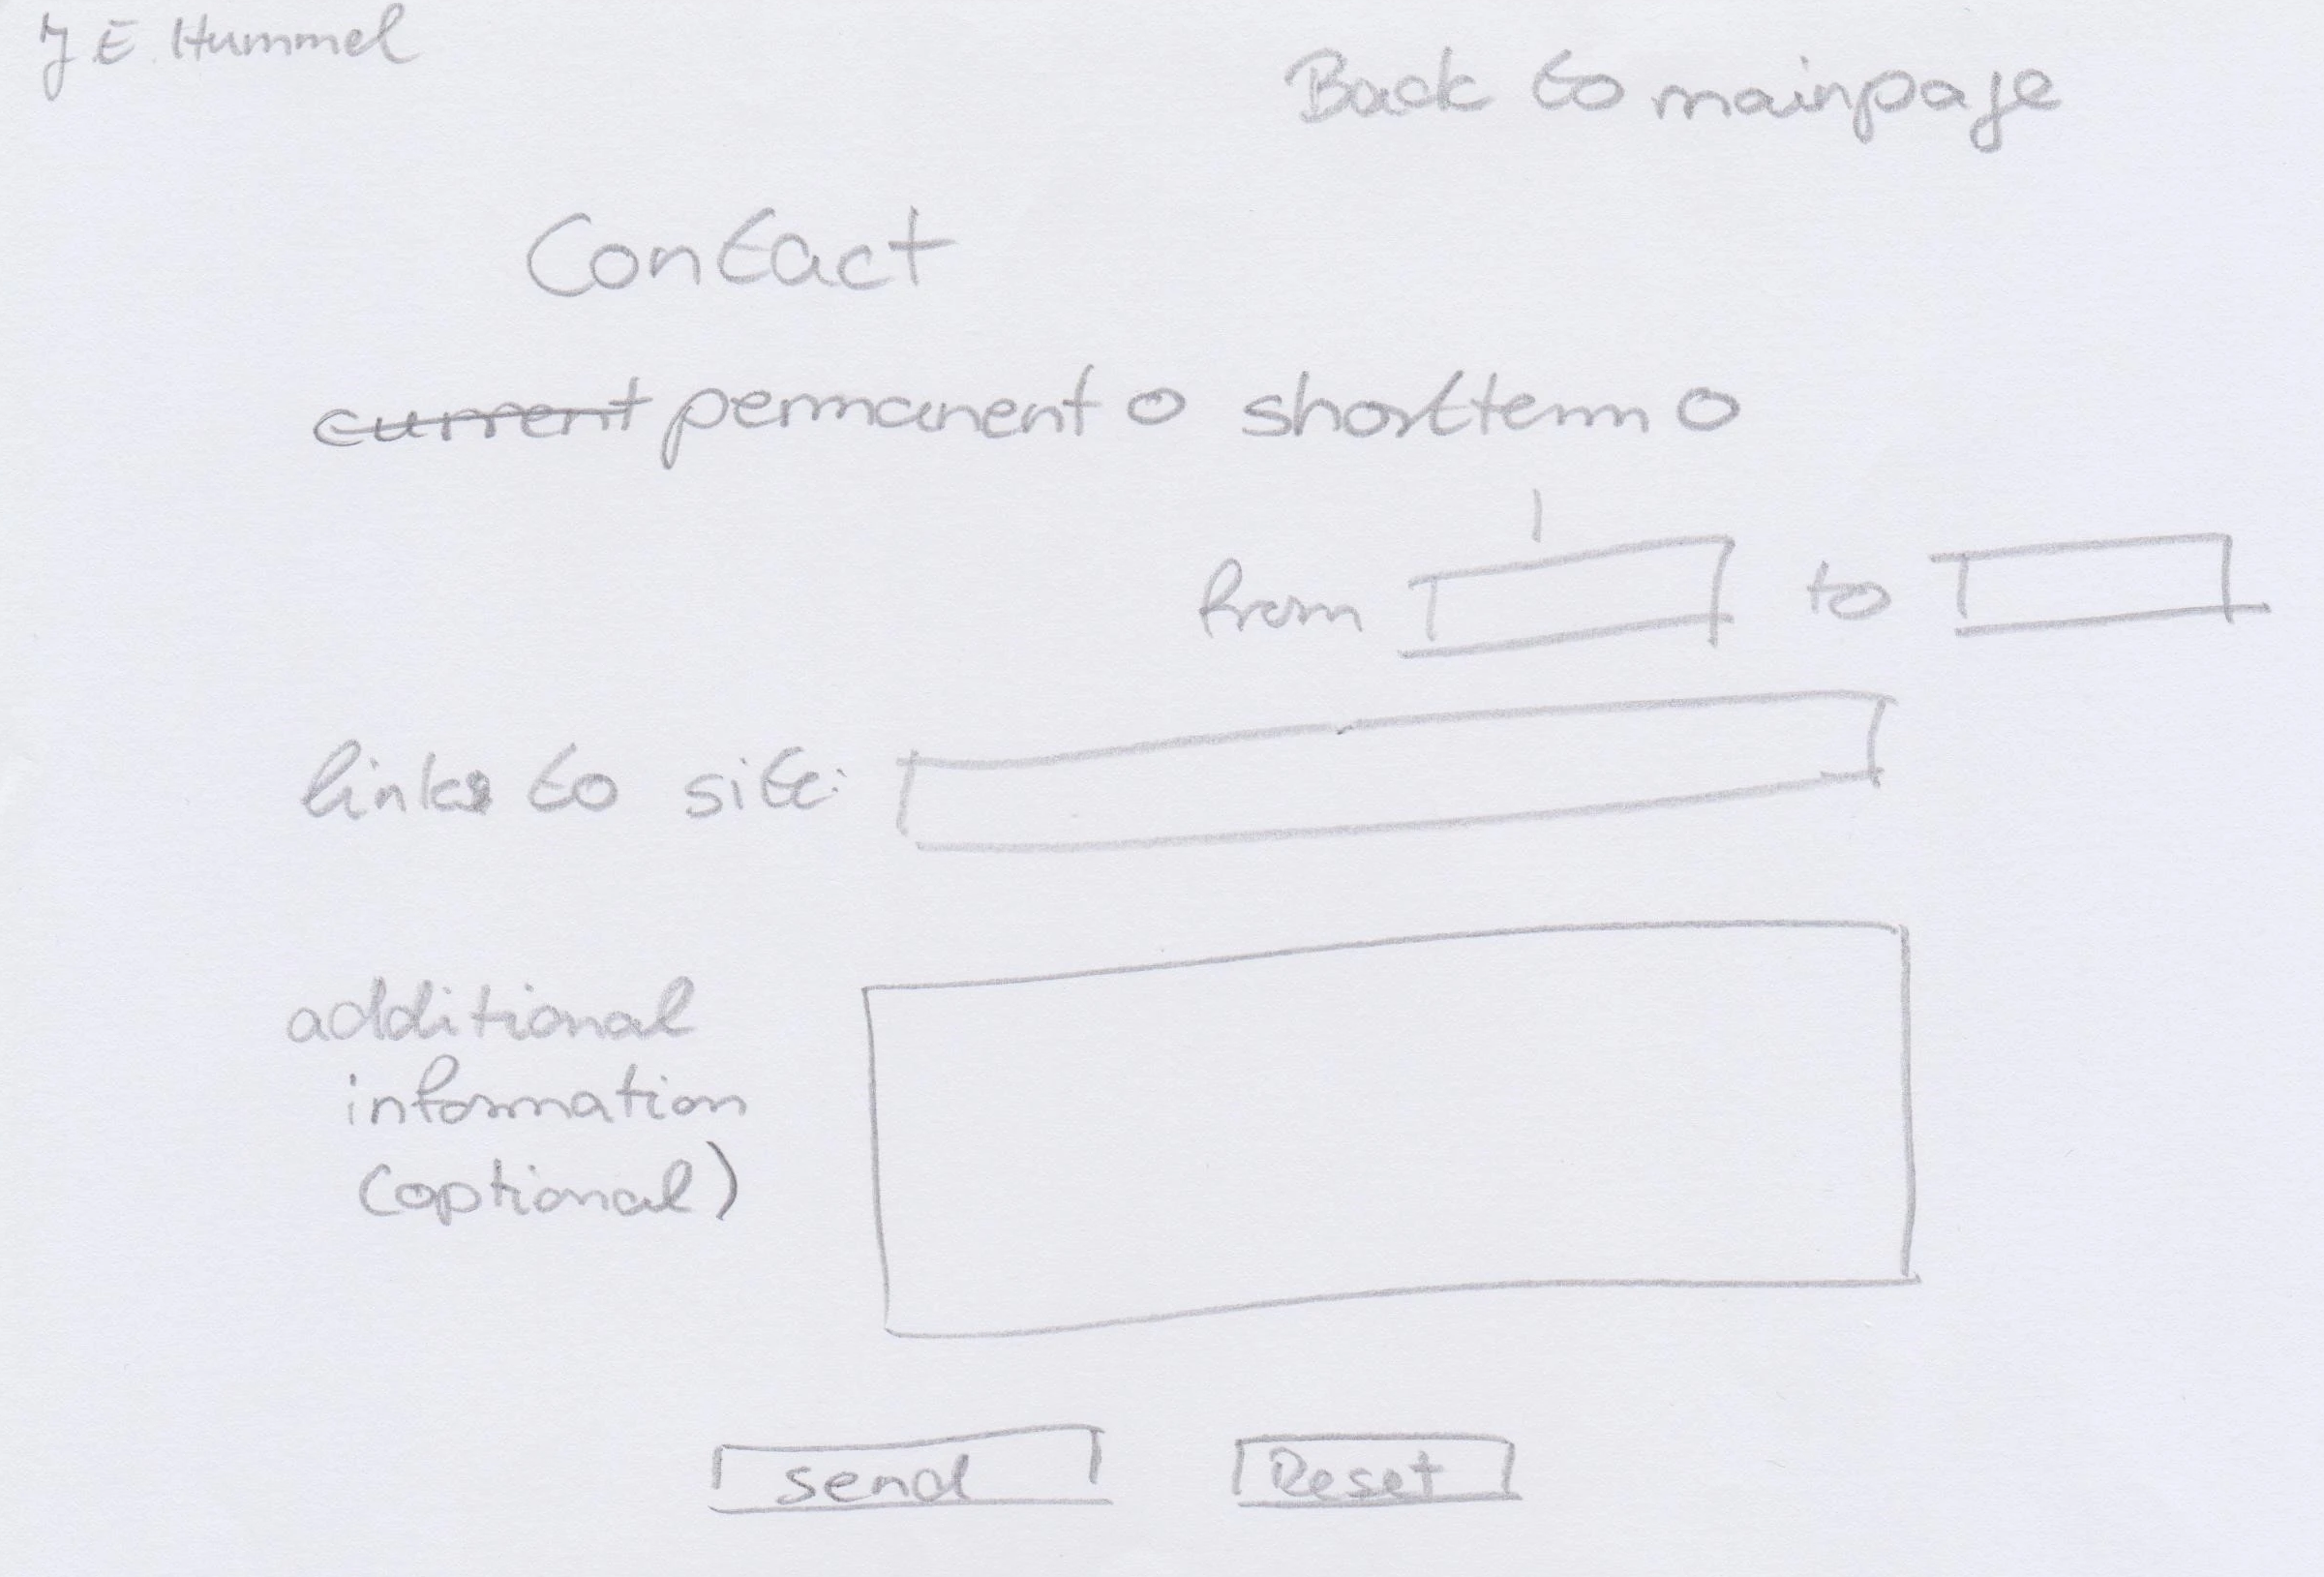 J E Hummel
Back to mainpage
Contact
current permanent shortterm
from to
links to site:
additional
information
(optional)
send Reset